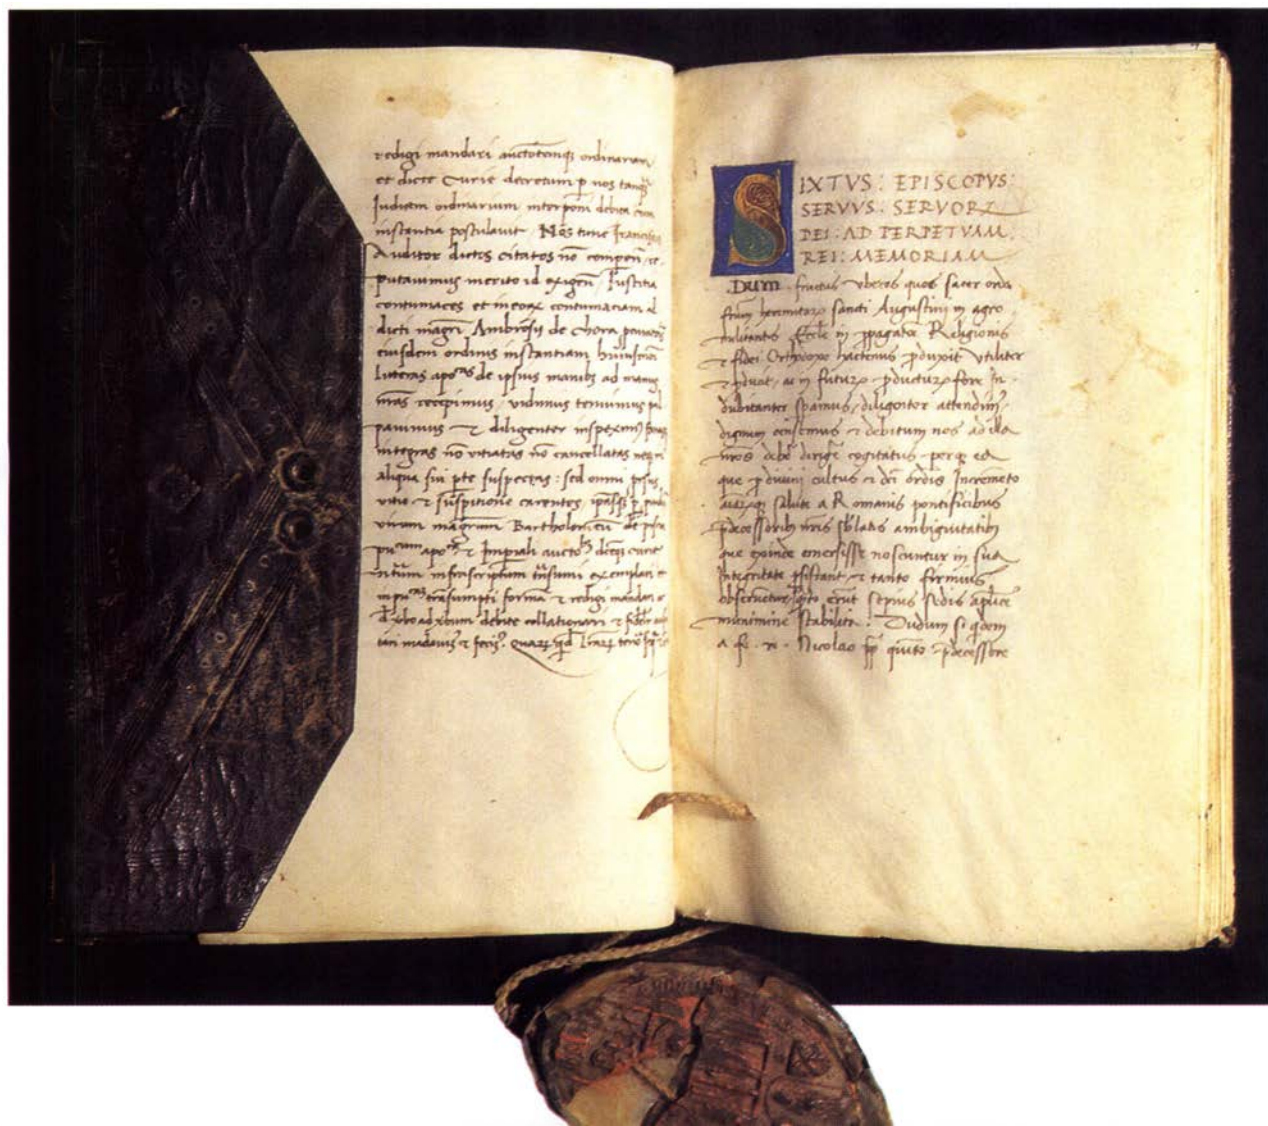 redigi mandari auctotemqz ordinariam
et dicte Curie decretum p nos tanqz
Judicem ordinarium interponi debita cum
instantia postulavit. Nos tunc Franciscus
Auditor dictos citatos nō comparen̄ re
putavimus merito id exigen̄ Justitia
contumaces et in eorꝝ contumaciam ad
dicti magri Ambrosij de Chora
eiusdem ordinis instantiam huiusmōi
litteras apo^cas de ipsius manibꝫ ad manus
nr̄as recepimus, vidimus tenuimus pal
pavimus et diligenter inspeximꝰ
integras nō vitiatas nō cancellatas neqꝫ
aliqua sui pte suspectas: sed omni prorsus
vitio et suspitione carentes,
virum magrum Bartholomeum de
apo^ca et Imperiali aucto^te
infrascriptum trāsumi exemplari et
trāsumpti formā et redigi mandari
debite collationari et
SIXTVS: EPISCOPVS:
SERVVS: SERVORꝜ
DEI: AD PERPETVAM:
REI: MEMORIAM
.Dum. fructus vberes quos sacer ordo
fratrum heremitaꝝ sancti Augustini in agro
militantis Eccl̄ie in ꝓpagatōe Religionis
et fidei Orthodoxe hactenus ꝓduxit vtiliter
et ꝓducit, ac in futurꝝ ꝓducturꝝ fore in
dubitanter sꝑamus, diligenter attendimꝰ,
dignum censemus et debitum nos ad illa
nr̄os debe dirige cogitatus per que ea
que ꝓ divini cultus et dci ordīs Incremēto
salute a Romanis pontificibus
ꝑdecessoribꝫ nr̄is sblatis ambiguitatibꝫ
que exinde emersisse noscuntur in sua
Integritate ꝑsistant et tanto firmius
observentur, quāto erūt sepius sedis apl̄ice
munimine stabilita. Dudum si qdem
a fe. re. Nicolao pp quinto ꝑdecessore